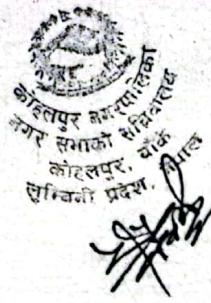 कोहलपुर नगरपालिका
नगर सभाको सचिवालय
कोहलपुर, बाँके
लुम्बिनी प्रदेश, नेपाल